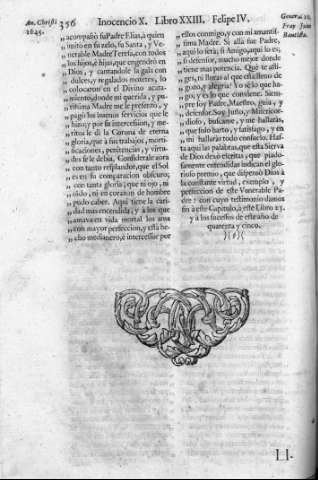 An. Christi
1645.
356
Inocencio X. Libro XXIII. Felipe IV.
General 28.
Fray Juan
Bautista.
„ acompañò su Padre Elias, à quien
„ imitò en su zelo, su Santa, y Ve-
„ nerable Madre Teresa, con todos
„ los hijos, è hijas, que engendrò en
„ Dios, y cantandole la gala con
„ dulces, y regalados motetes, lo
„ colocaron en el Divino acata-
„ miento, donde mi querida, y pu-
„ rissima Madre me le presentò, y
„ pagò los buenos servicios que le
„ hizo; y por su intercession, y me-
„ ritos le dì la Corona de eterna
„ gloria, que à sus trabajos, morti-
„ ficaciones, penitencias, y virtu-
„ des se le debia. Consideralè aora
„ con tanto resplandor, que el Sol
„ es en su comparacion obscuro;
„ con tanta gloria; que ni ojo, ni
„ oìdo, ni en corazon de hombre
„ pudo caber. Aqui tiene la cari-
„ dad mas encendida, y à los que
„ amava en vida mortal los ama
„ con mayor perfeccion, y està he-
„ cho medianero, è intercessor por
„ ellos conmigo, y con mi amantis-
„ sima Madre. Si allà fue Padre,
„ aqui lo serà; si Amigo, aqui lo es,
„ si defensor, mucho mejor donde
„ tiene mas potencia. Què te afli-
„ ges, ni lloras al que està lleno de
„ gozo, y alegria? Yo sè lo que ha-
„ go; y es lo que conviene. Siem-
„ pre soy Padre, Maestro, guia, y
„ defensor. Soy Justo, y Misericor-
„ dioso, buscame, y me hallaràs,
„ que solo harto, y satisfago, y en
„ mi hallaràs todo consuelo. Has-
ta aqui las palabras, que esta Sierva
de Dios dexò escritas; que piado-
samente entendidas indican el glo-
rioso premio, que dispensò Dios à
la constante virtud, exemplo, y
perfeccion de este Venerable Pa-
dre: con cuyo testimonio damos
fin à este Capitulo, à este Libro 23.
y à los sucessos de este año de
quarenta y cinco.
)(§)(